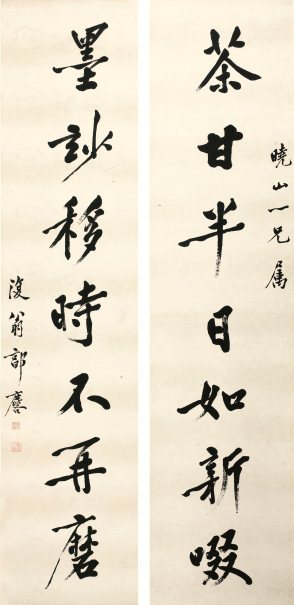 曉山一兄屬
茶甘半日如新啜
墨玅移時不再磨
復翁郭麐